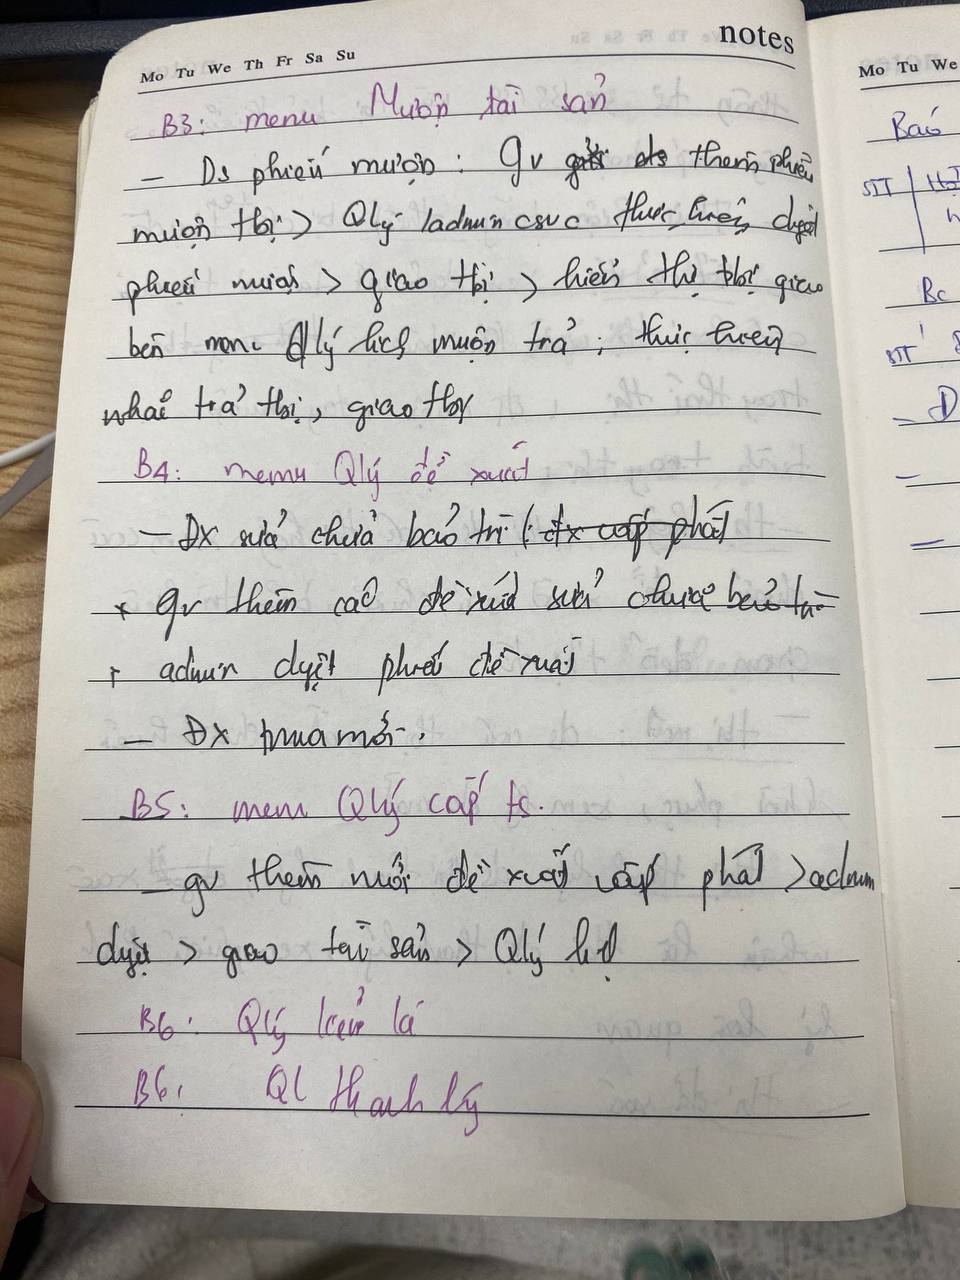 notes
Mo Tu We Th Fr Sa Su
B3: menu Mượn tài sản
- Ds phiếu mượn: gv thêm phiếu
mượn tbị > Qlý /admin csvc thực hiện duyệt
phiếu mượn > giao tbị > hiển thị tbị giao
bên menu Qlý lịch mượn trả; thực hiện
trả tbị, giao tbị
B4: menu Qlý đề xuất
- Đx sửa chữa bảo trì (đx cấp phát)
+ gv thêm các đề xuất sửa chữa bảo trì
+ admin duyệt phiếu đề xuất
- Đx mua mới.
B5: menu Qlý cấp ts.
- gv thêm mới đề xuất cấp phát > admin
duyệt > giao tài sản > Qlý
B6: Qlý kiểm kê
B6: QL thanh lý
Mo Tu We
Báo
STT
Bc
STT
- Đ
-
-